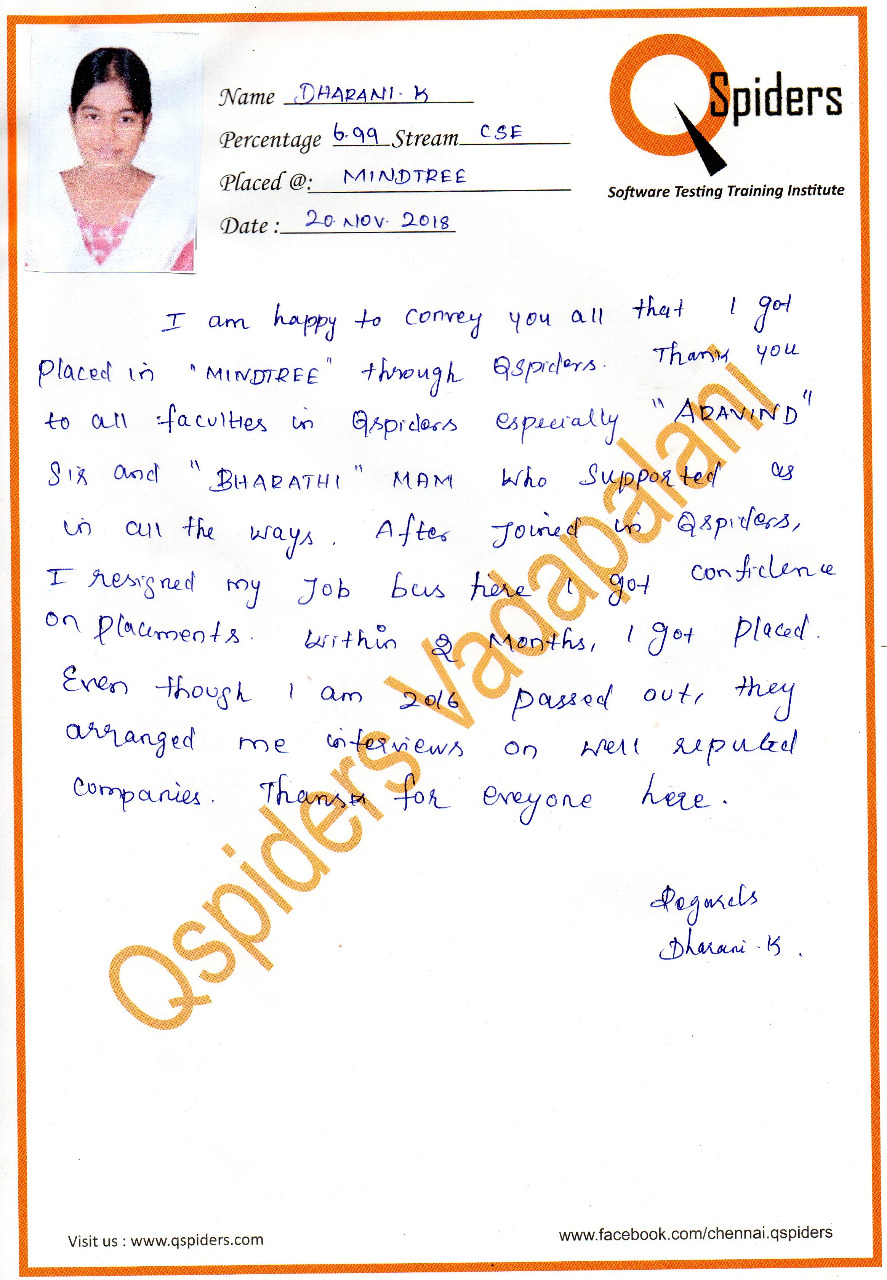 QSpiders
Software Testing Training Institute
Name DHARANI. K
Percentage 6.99 Stream CSE
Placed @: MINDTREE
Date : 20. NOV. 2018
I am happy to convey you all that I got
placed in "MINDTREE" through QSpiders. Thank you
to all faculties in Qspiders especially "ARAVIND"
Sir and "BHARATHI" MAM who supported as
in all the ways. After Joined in Qspiders,
I resigned my Job bcs here I got confidence
on placements. Within 2 Months, I got placed.
Even though I am 2016 passed out, they
arranged me interviews on well reputed
companies. Thanks for eveyone here.
Regards
Dharani. K.
Qspiders Vadapalani
Visit us : www.qspiders.com
www.facebook.com/chennai.qspiders